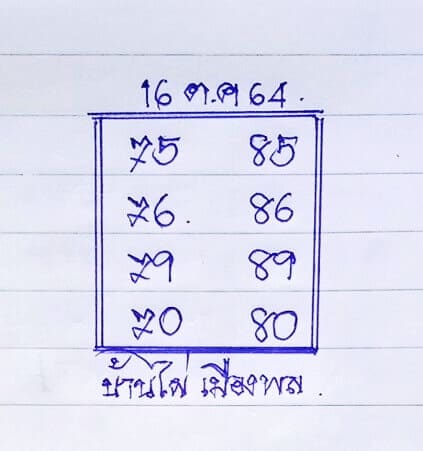 16 ต.ค 64.
75 85
76. 86
79 89
70 80
บ้านไผ่ เมืองพล.